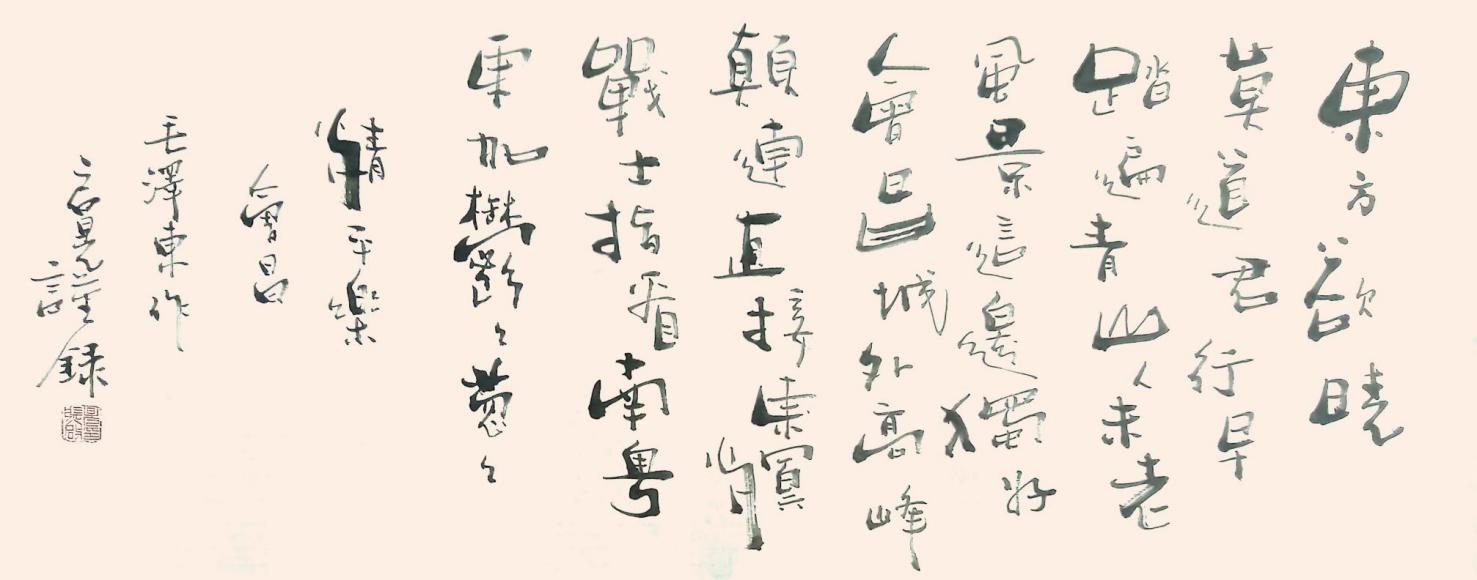 東方欲曉
莫道君行早
踏遍青山人未老
風景這邊獨好
會昌城外高峰
顛連直接東溟
戰士指看南粤
更加鬱々葱々
清平樂
會昌
毛澤東作
謹録